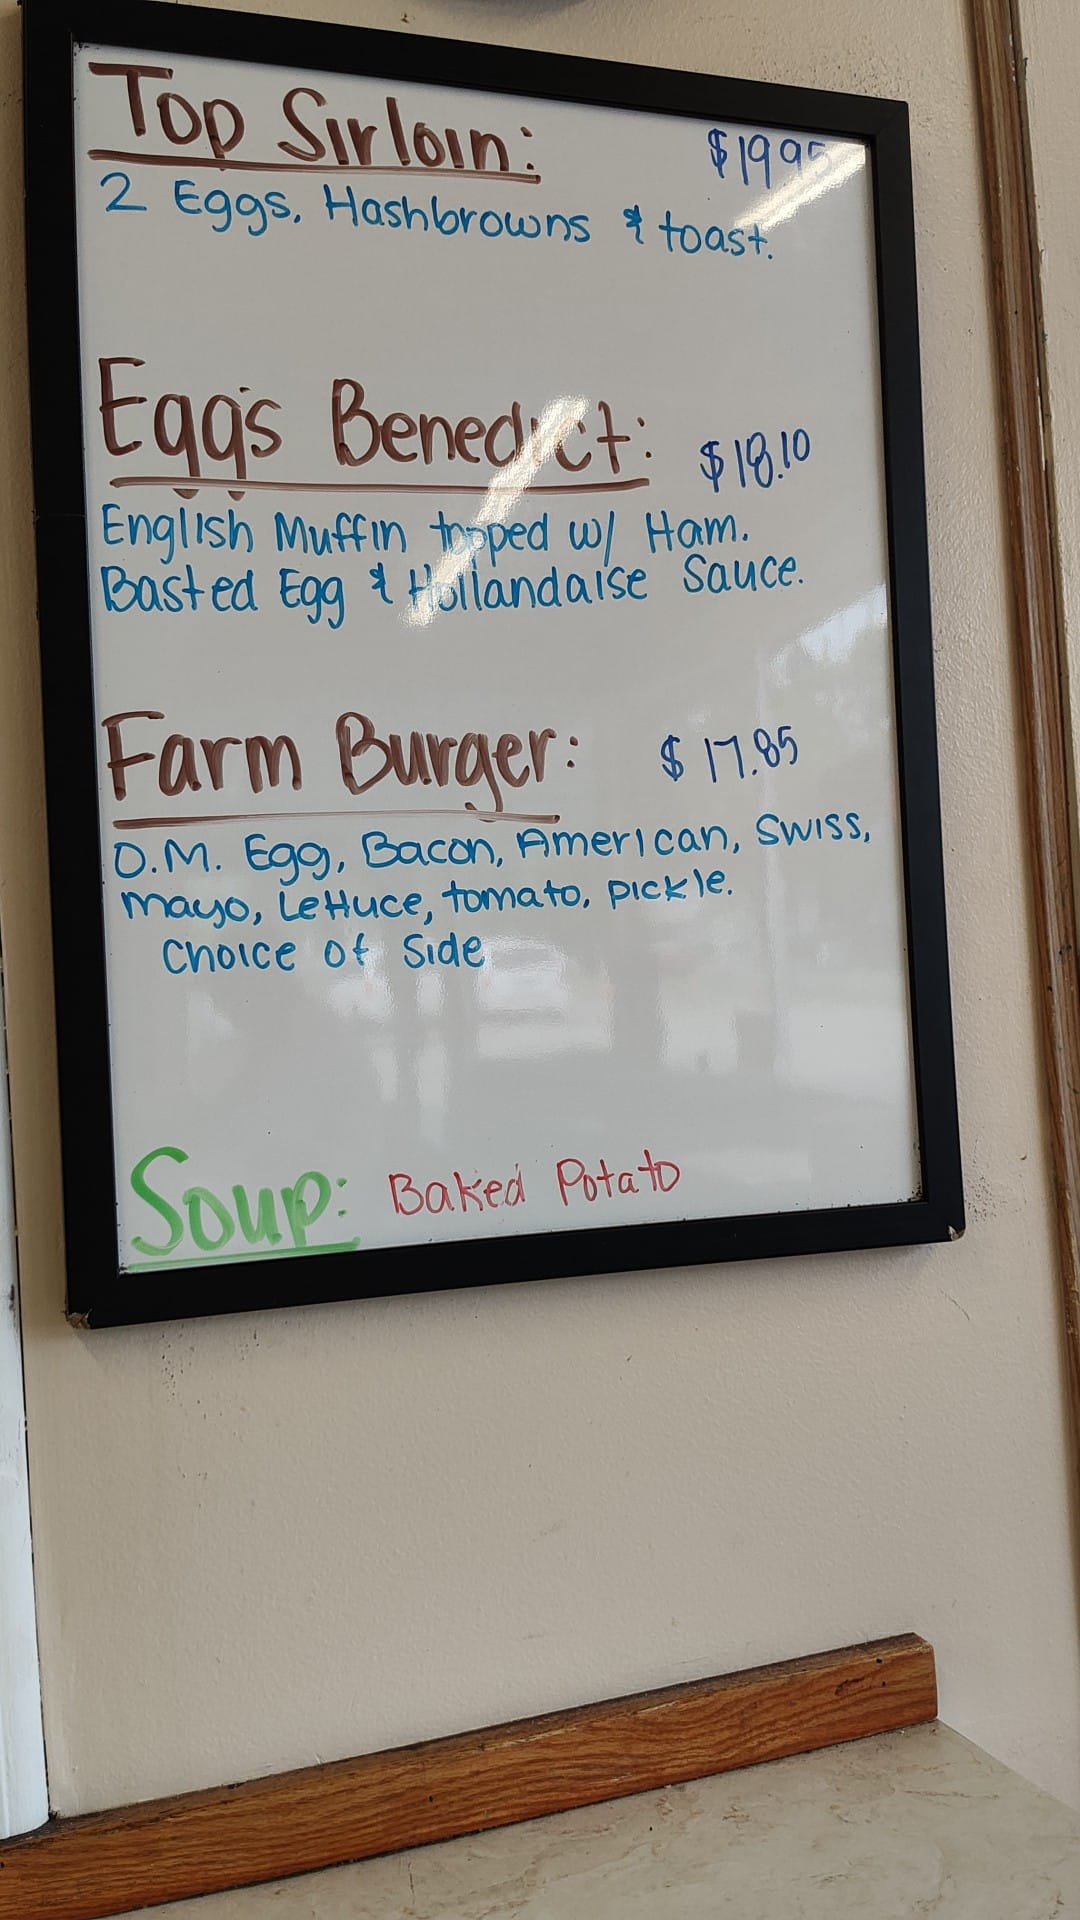 Top Sirloin: $19.95
2 Eggs, Hashbrowns & toast.
Eggs Benedict: $18.10
English Muffin topped w/ Ham.
Basted Egg & Hollandaise Sauce.
Farm Burger: $17.85
O.M. Egg, Bacon, American, Swiss,
mayo, Lettuce, tomato, pickle.
Choice of Side
Soup: Baked Potato